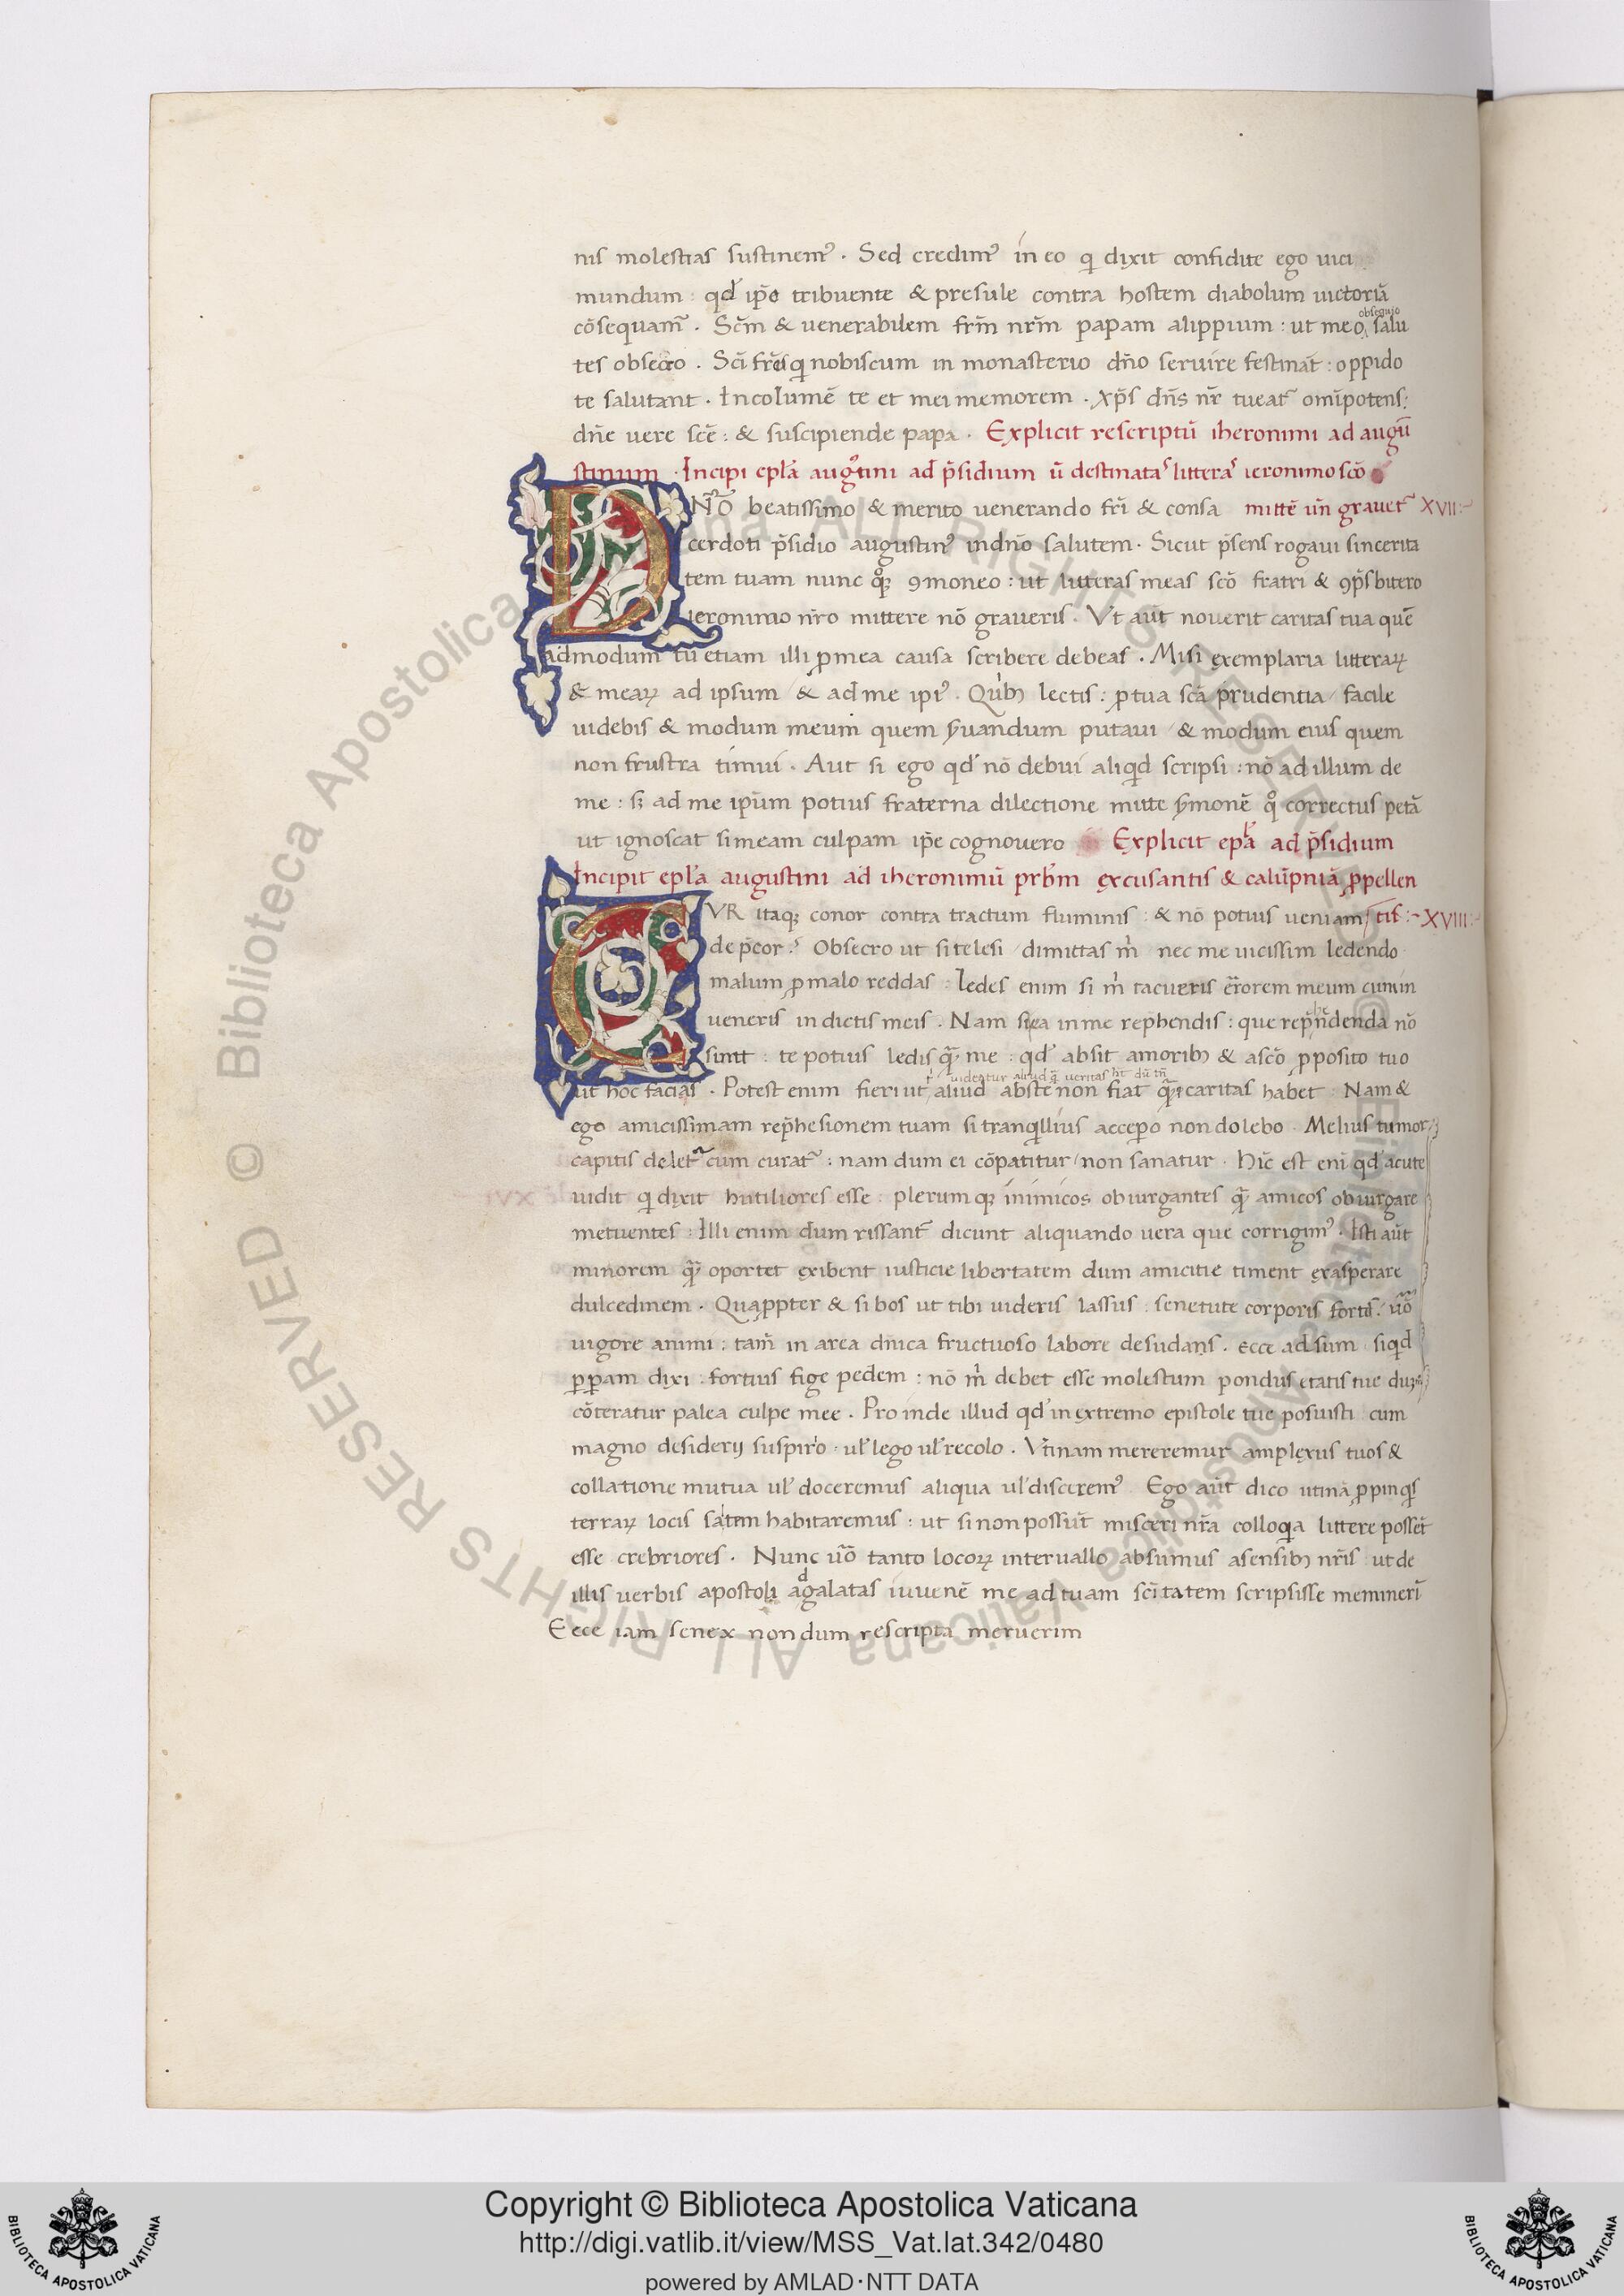 nis molestias sustinem᾽ . Sed credim᾽ in eo qi dixit confidite ego uici
mundum : qd' ip̄o tribuente & presule contra hostem diabolum uictoriā
cōsequam᷑ . Sc̄m & venerabilem fr̄m nr̄m papam alippium : ut meo obsequio salu
tes obsecro . Sc̄i fr̄es qi nobiscum in monasterio dn̄o servire festināt : oppido
te salutant . Incolumē te et mei memorem . xp̄s dn̄s nr̄ tueat᷑ omīpotens :
dn̄e vere sc̄e : & suscipiende papa . Explicit rescriptū iheronimi ad augū
stinum . Incipi epl̄a aug᾽tini ad p̄sidium ū destinatas litteras ieronimo scō
DN̄O beatissimo & merito venerando fr̄i & consa mittē un̄ gravet᷑ XVII :
cerdoti p̄sidio augustin᾽ in dn̄o salutem . Sicut p̄sens rogaui sincerita
tem tuam nunc qoq; 9moneo : ut litteras meas scō fratri & 9p̄sbitero
ieronimo nr̄o mittere nō graveris . Vt aūt noverit caritas tua quē
admodum tu etiam illi ꝓ mea causa scribere debeas . Misi exemplaria litteraꝝ
& meaꝝ ad ipsum / & ad me ipi᾽ . Qui᷒b; lectis : ꝓ tua scā prudentia / facile
uidebis & modum meum quem s̄vandum putavi / & modum eius quem
non frustra timui . Aut si ego qd' nō debui aliqid scripsi : nō ad illum de
me : s; ad me ip̄um potius fraterna dilectione mitte s̄monē qo correctus petā
ut ignoscat si meam culpam ip̄e cognovero Explicit epl̄a ad p̄sidium
Incipit epl̄a augustini ad iheronimū prb̄m excusantis & calūpniā ꝓpellen
CVR itaq; conor contra tractum fluminis : & nō potius veniam tis : XVIII :
de p̄cor ? Obsecro ut si te lesi / dimittas mi nec me vicissim ledendo
malum ꝓ malo reddas : ledes enim si mi tacueris er̄rorem meum cum in
veneris in dictis meis . Nam si ea in me rep̄hendis : que rep̄hēdenda nō
sintt : te potius ledis qm̄ me : qd' absit amorib; & a scō ꝓposito tuo
ut hoc facias . Potest enim fieri ut t' videtur aliud qm̄ veritas ht̄ dū tn̄ aliud abs te non fiat qm̄ caritas habet : Nam &
ego amicissimam rep̄hesionem tuam si tranqillius accepero non dolebo . Melius tumor
capitis delet᷑ cum curat᷑ : nam dum ei cōpatitur / non sanatur . Hīc est enī qd' acute
uidit qi dixit hutiliores esse : plerumq; inimicos obiurgantes qm̄ amicos obiurgare
metuentes : Illi enim dum rissant᷑ dicunt aliquando vera que corrigim᾽ . Isti aūt
minorem qm̄ oportet exibent iusticie libertatem dum amicitie timent exasperare
dulcedinem . Quaꝓpter & si bos ut tibi videris lassus : senetute corporis fortis . vō
uigore animi : tam̄ in area dn̄ica fructuoso labore desudans . ecce adsum siqid
ꝑꝑam dixi : fortius fige pedem : nō mi debet esse molestum pondus etatis tue dum
cōteratur palea culpe mee . Proinde illud qd' in extremo epistole tue posuisti cum
magno desiderij suspiro . ul' lego ul' recolo . Vtinam mereremur amplexus tuos &
collatione mutua ul' doceremus aliqua ul' discerem᾽ Ego aūt dico utinā ꝓpinqis
terraꝝ locis saltem habitaremus : ut si non possūt misceri nr̄a colloqia littere possēt
esse crebriores . Nunc vō tanto locoꝝ intervallo absumus a sensib; nr̄is ut de
illis verbis apostoli ad galatas iuvenē me ad tuam sc̄itatem scripsisse meminerī
Ecce iam senex non dum rescripta meruerim
Copyright © Biblioteca Apostolica Vaticana
http://digi.vatlib.it/view/MSS_Vat.lat.342/0480
powered by AMLAD·NTT DATA
BIBLIOTECA APOSTOLICA VATICANA
BIBLIOTECA APOSTOLICA VATICANA
© Biblioteca Apostolica Vaticana ALL RIGHTS RESERVED
© Biblioteca Apostolica Vaticana ALL RIGHTS RESERVED